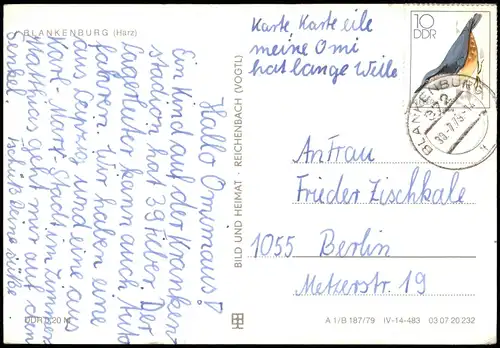 BLANKENBURG (Harz)
Hallo Omimaus!
Ein Kind auf der Kranken-
stadion hat 39 Fiber. Der
Lagerleiter kann auch Auto
fahren. Wir haben eine
aus Leipzig und eine aus
Karl-Marx-Stadt im Zimmer.
Matthias geht mir auf den
Senkel. Tschüß deine süße
DDR 0,20 M
BILD UND HEIMAT · REICHENBACH (VOGTL)
Karte, Karte eile
meine Omi
hat lange Weile
10
DDR
BLANKENBURG
372
An Frau
Frieder Zischkale
1055 Berlin
Metzerstr. 19
A 1/B 187/79 IV-14-483 03 07 20 232